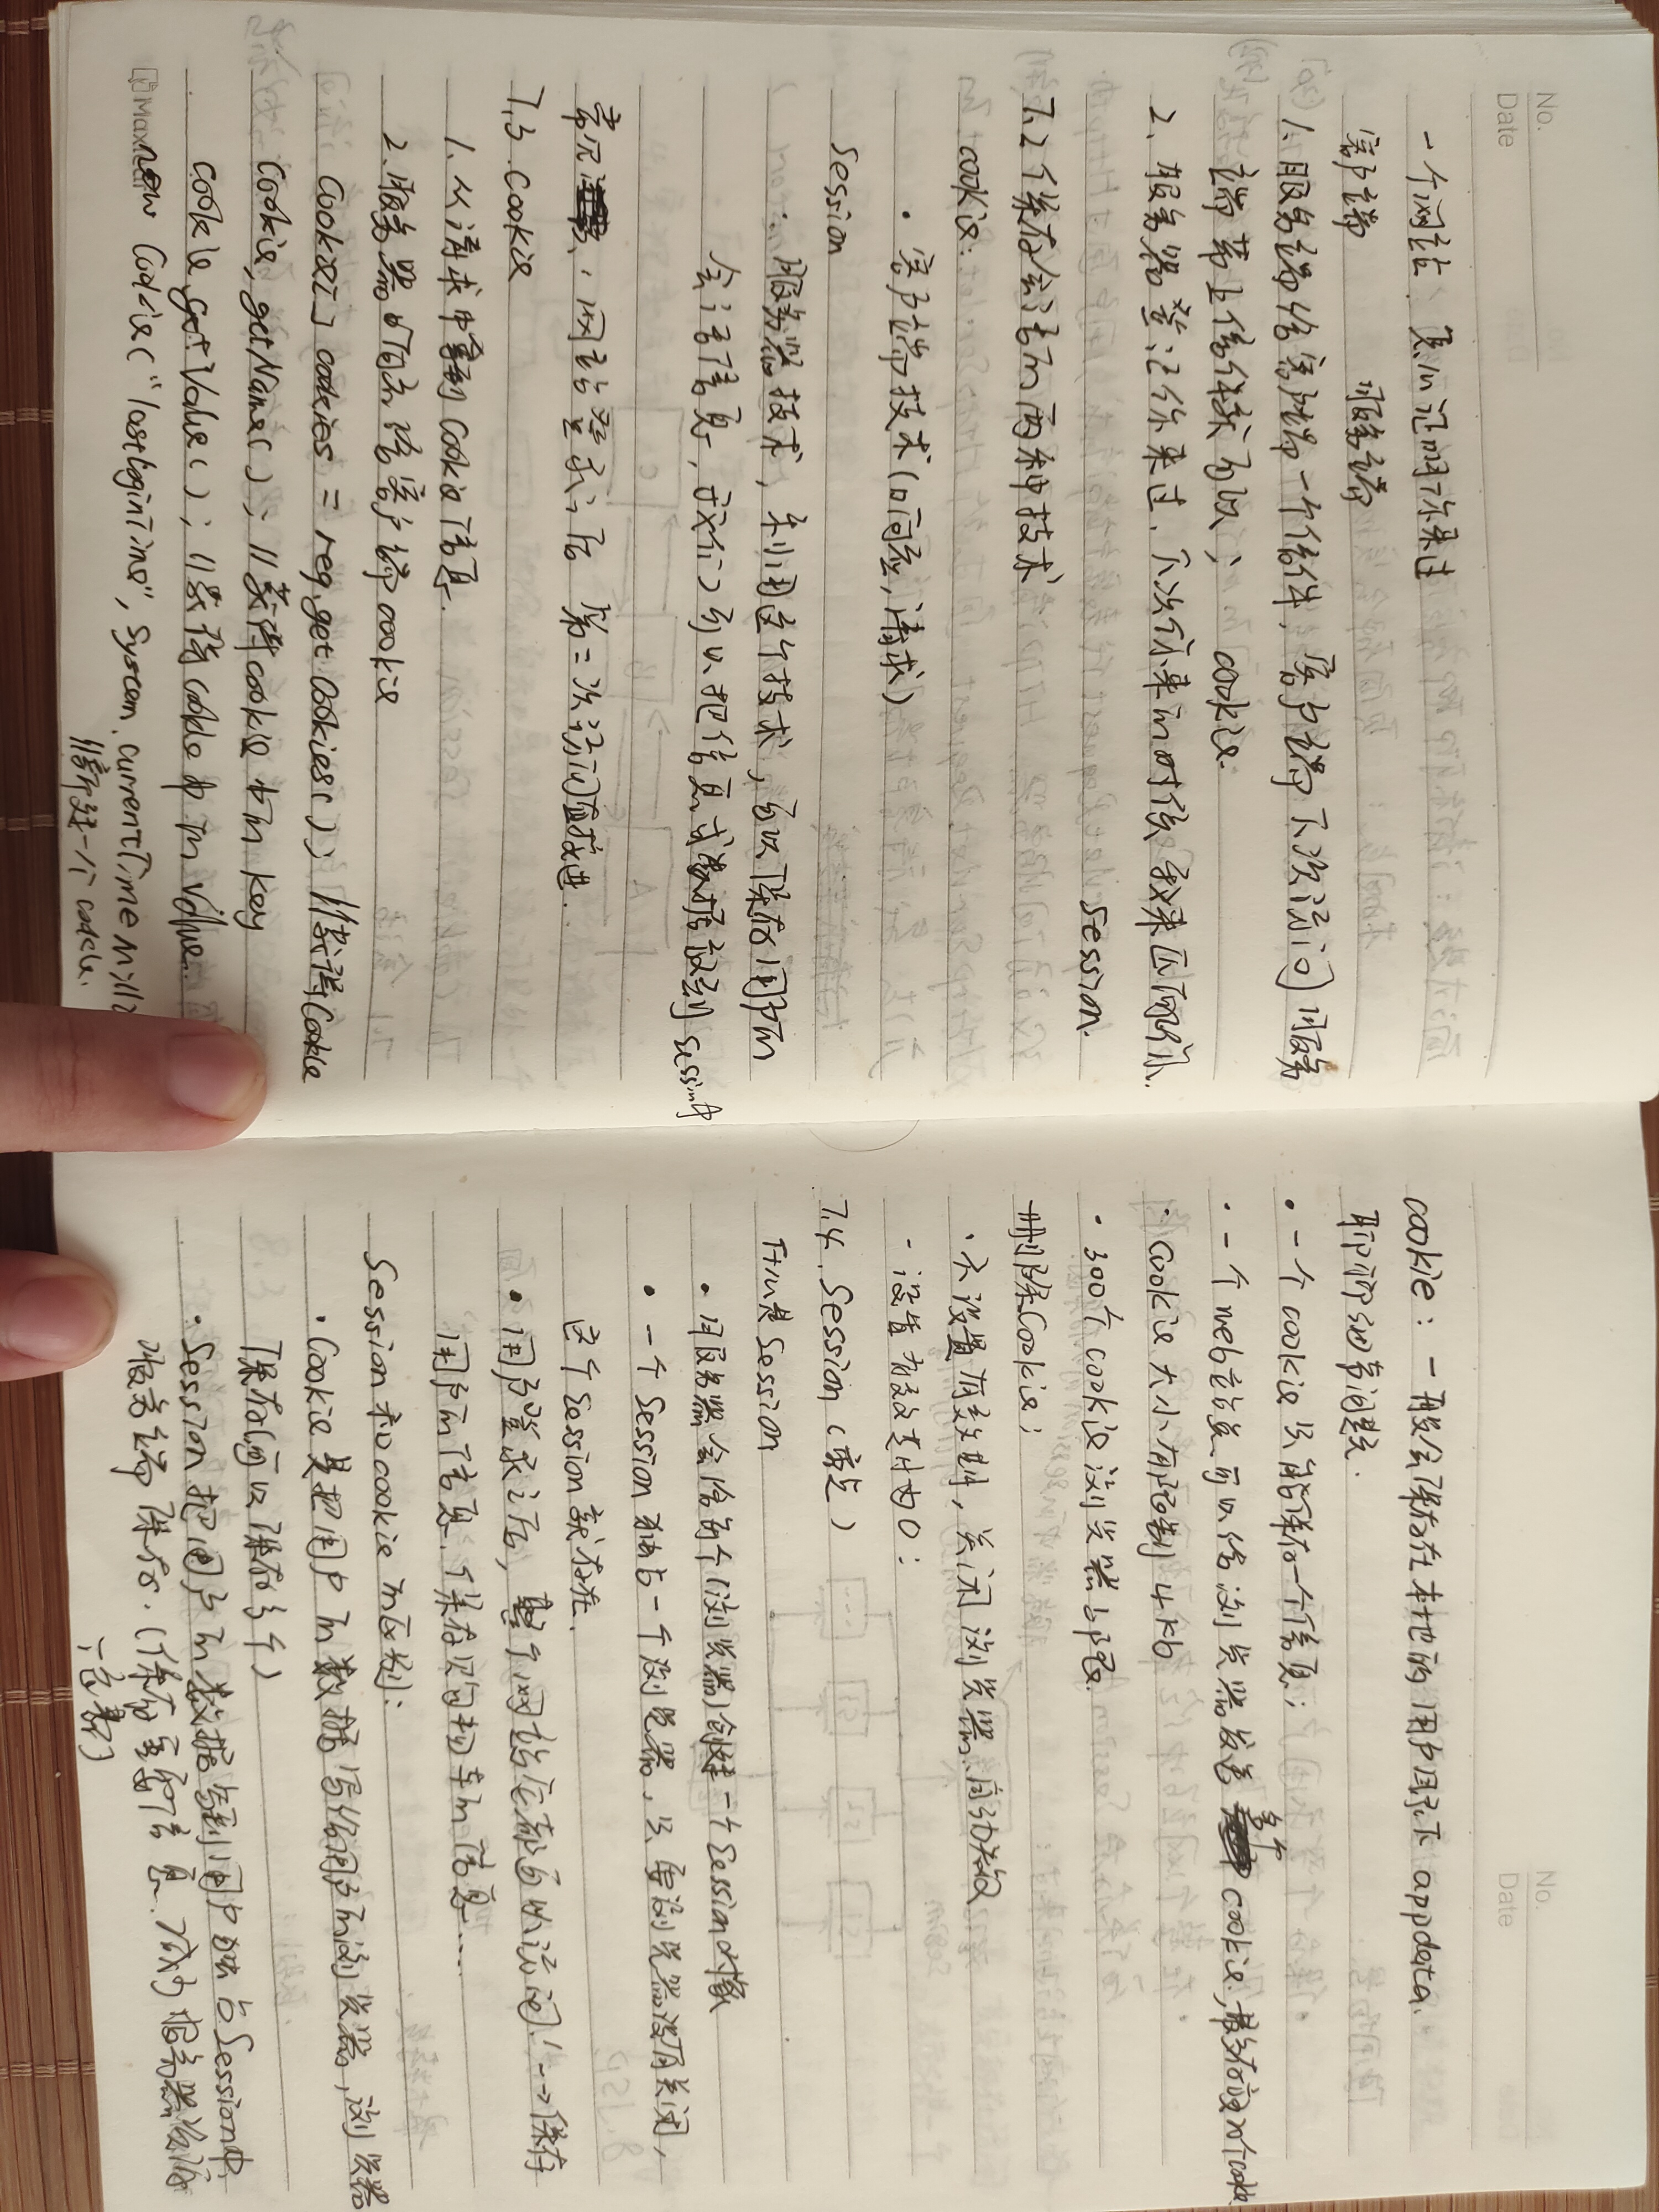 No.
Date
一个网站,怎么证明你来过
客户端 服务端
1.服务端给客户端一个信件,客户端下次访问服务
端带上信件就可以; cookie.
2、服务器登记你来过,下次你来的时候我来匹配你.
Session.
7.2 保存会话的两种技术
cookie:
· 客户端技术(响应,请求)
Session
· 服务器技术,利用这个技术,可以保存用户的
会话信息,我们可以把信息或数据放到session中
常见:网站登录之后 第二次访问直接进.
7.3 Cookie
1.从请求中拿到cookie信息.
2.服务器响应给客户端cookie
Cookie[] cookies = req.getCookies(); //获得Cookie
Cookie.getName(); //获得cookie中的key
Cookie.getValue(); //获得cookie中的value
new Cookie("lastloginTime", System.currentTimeMillis
//新建一个cookie.
No.
Date
cookie:一般会保存在本地的用户目录下 appdata.
聊聊细节问题.
· 一个cookie只能保存一个信息;
· 一个web站点可以给浏览器发送多个cookie,最多存放20个cookie
· Cookie大小有限制4kb
· 300个cookie浏览器上限.
删除Cookie;
· 不设置有效期,关闭浏览器,自动失效
· 设置有效期为0:
7.4、Session(重点)
什么是Session
· 服务器会给每个(浏览器)创建一个Session对象
· 一个Session独占一个浏览器,只要浏览器没有关闭,
这个Session就存在.
· 用户登录之后,整个网站它都可以访问!-->保存
用户的信息.保存购物车的信息....
Session和cookie的区别:
· Cookie是把用户的数据写给用户的浏览器,浏览器
保存(可以保存多个)
· Session把用户的数据写到用户独占Session中,
服务端保存.(保存重要的信息,减少服务器资源
的浪费)